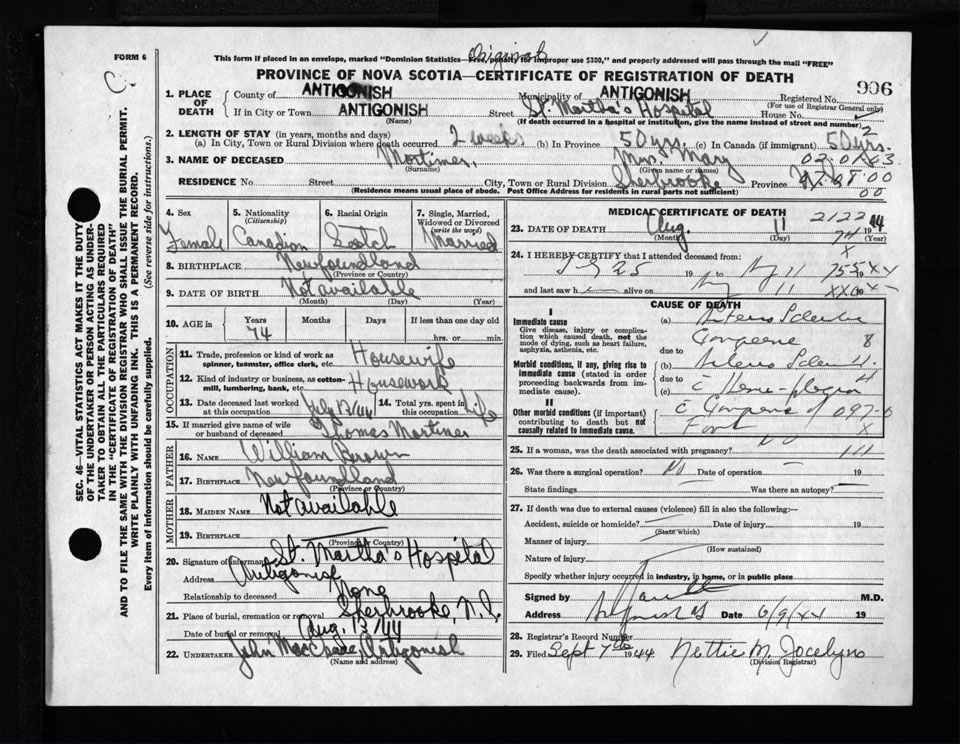 FORM 6
Original
This form if placed in an envelope, marked "Dominion Statistics—Free, penalty for improper use $300," and properly addressed will pass through the mail "FREE"
PROVINCE OF NOVA SCOTIA—CERTIFICATE OF REGISTRATION OF DEATH
996
1. PLACE OF DEATH
County of ANTIGONISH Municipality of ANTIGONISH Registered No.
(For use of Registrar General only)
If in City or Town ANTIGONISH Street St. Martha's Hospital House No.
(Name) (If death occurred in a hospital or institution, give the name instead of street and number)
2. LENGTH OF STAY (in years, months and days)
(a) In City, Town or Rural Division where death occurred 2 weeks (b) In Province 50 yrs. (c) In Canada (if immigrant) 50 yrs.
3. NAME OF DECEASED Mortimer, Mrs. Mary
(Surname) (Given name or names)
RESIDENCE No Street City, Town or Rural Division Sherbrooke Province
(Residence means usual place of abode. Post Office Address for residents in rural parts not sufficient)
00
4. Sex
Female
5. Nationality (Citizenship)
Canadian
6. Racial Origin
Scotch
7. Single, Married, Widowed or Divorced (write the word)
Married
8. BIRTHPLACE Newfoundland
(Province or Country)
9. DATE OF BIRTH Not available
(Month) (Day) (Year)
10. AGE in Years Months Days If less than one day old
74 hrs. or min.
OCCUPATION
11. Trade, profession or kind of work as spinner, teamster, office clerk, etc. Housewife
12. Kind of industry or business, as cotton-mill, lumbering, bank, etc. Housework
13. Date deceased last worked at this occupation July 13/44
14. Total yrs. spent in this occupation Life
15. If married give name of wife or husband of deceased Thomas Mortimer
FATHER
16. NAME William Brown
17. BIRTHPLACE Newfoundland
(Province or Country)
MOTHER
18. MAIDEN NAME Not available
19. BIRTHPLACE
(Province or Country)
20. Signature of informant St. Martha's Hospital
Address Antigonish
Relationship to deceased None
21. Place of burial, cremation or removal Sherbrooke, N.S.
Date of burial or removal Aug. 13/44
22. UNDERTAKER John Antigonish
(Name and address)
MEDICAL CERTIFICATE OF DEATH
2122
23. DATE OF DEATH Aug. 11 1944
(Month) (Day) (Year)
24. I HEREBY CERTIFY that I attended deceased from:
25 19 to 11 19
and last saw h alive on 11 19
CAUSE OF DEATH
I
Immediate cause
Give disease, injury or complication which caused death, not the mode of dying, such as heart failure, asphyxia, asthenia, etc.
(a)
due to
Morbid conditions, if any, giving rise to immediate cause (stated in order proceeding backwards from immediate cause).
(b)
due to
(c)
II
Other morbid conditions (if important) contributing to death but not causally related to immediate cause.
Foot
25. If a woman, was the death associated with pregnancy? No
26. Was there a surgical operation? No Date of operation
State findings Was there an autopsy?
27. If death was due to external causes (violence) fill in also the following:—
Accident, suicide or homicide? Date of injury 19
(State which)
Manner of injury
(How sustained)
Nature of injury
Specify whether injury occurred in industry, in home, or in public place
Signed by M.D.
Address Date 6/9/44 19
28. Registrar's Record Number
29. Filed Sept 7th 1944 Nettie M. Jocelyn
(Division Registrar)
SEC. 46—VITAL STATISTICS ACT MAKES IT THE DUTY
OF THE UNDERTAKER OR PERSON ACTING AS UNDER-
TAKER TO OBTAIN ALL THE PARTICULARS REQUIRED
IN THE "CERTIFICATE OF REGISTRATION OF DEATH"
AND TO FILE THE SAME WITH THE DIVISION REGISTRAR WHO SHALL ISSUE THE BURIAL PERMIT.
WRITE PLAINLY WITH UNFADING INK. THIS IS A PERMANENT RECORD.
Every item of information should be carefully supplied. (See reverse side for instructions.)